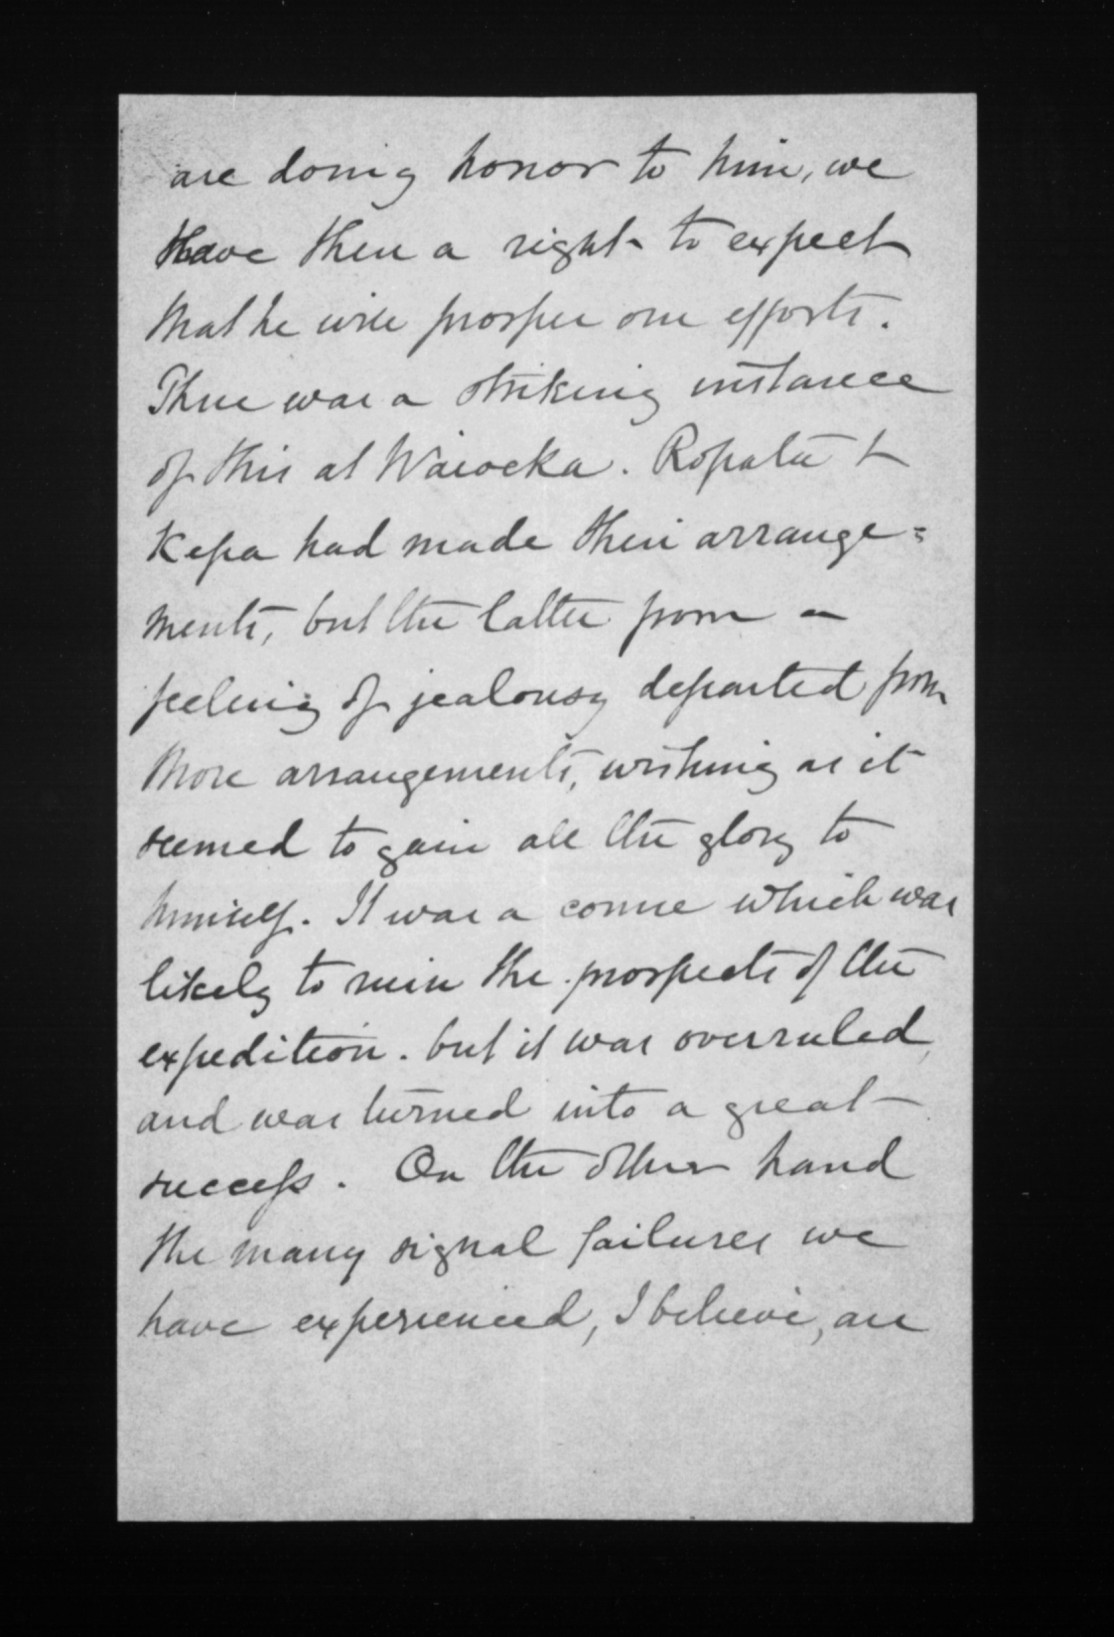 are doing honor to him, we
have then a right to expect
that he will prosper our efforts.
There was a striking instance
of this at Waioeka. Ropata &
Kepa had made their arrange=
ments, but the latter from a
feeling of jealousy departed from
those arrangements, wishing as it
seemed to gain all the glory to
himself. It was a course which was
likely to ruin the prospects of the
expedition. but it was overruled,
and was turned into a great
success. On the other hand
the many signal failures we
have experienced, I believe, are